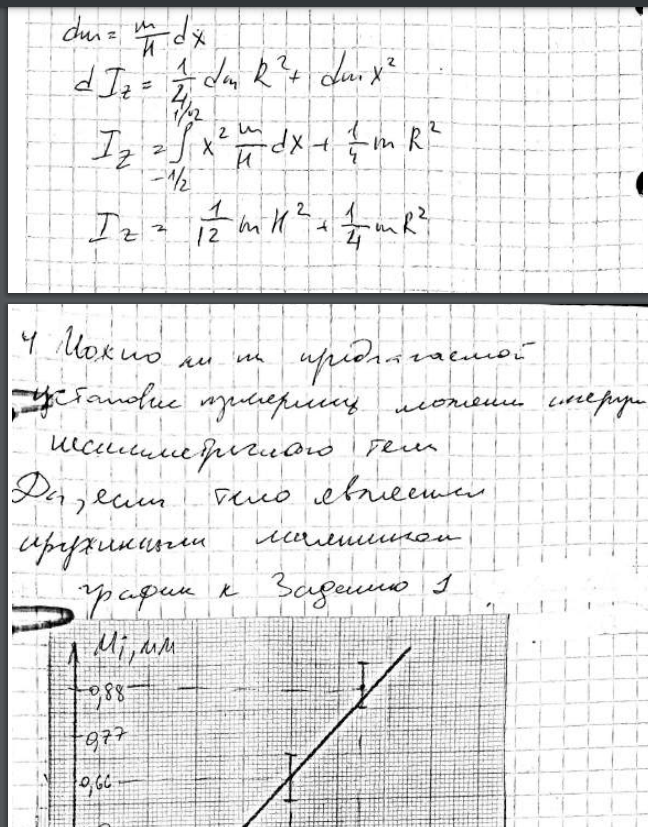 dm = m/H dx
dI_z = 1/4 dm R² + dm x²
I_z = ∫_{-1/2}^{1/2} x² m/H dx + 1/4 m R²
I_z = 1/12 m H² + 1/4 m R²
4 Можно ли на предлагаемой
установке измерить момент инерции
несимметричного тела
Да, если тело является
пружинным маятником
график к Заданию 1
Mi, мм
0,88
0,77
0,66